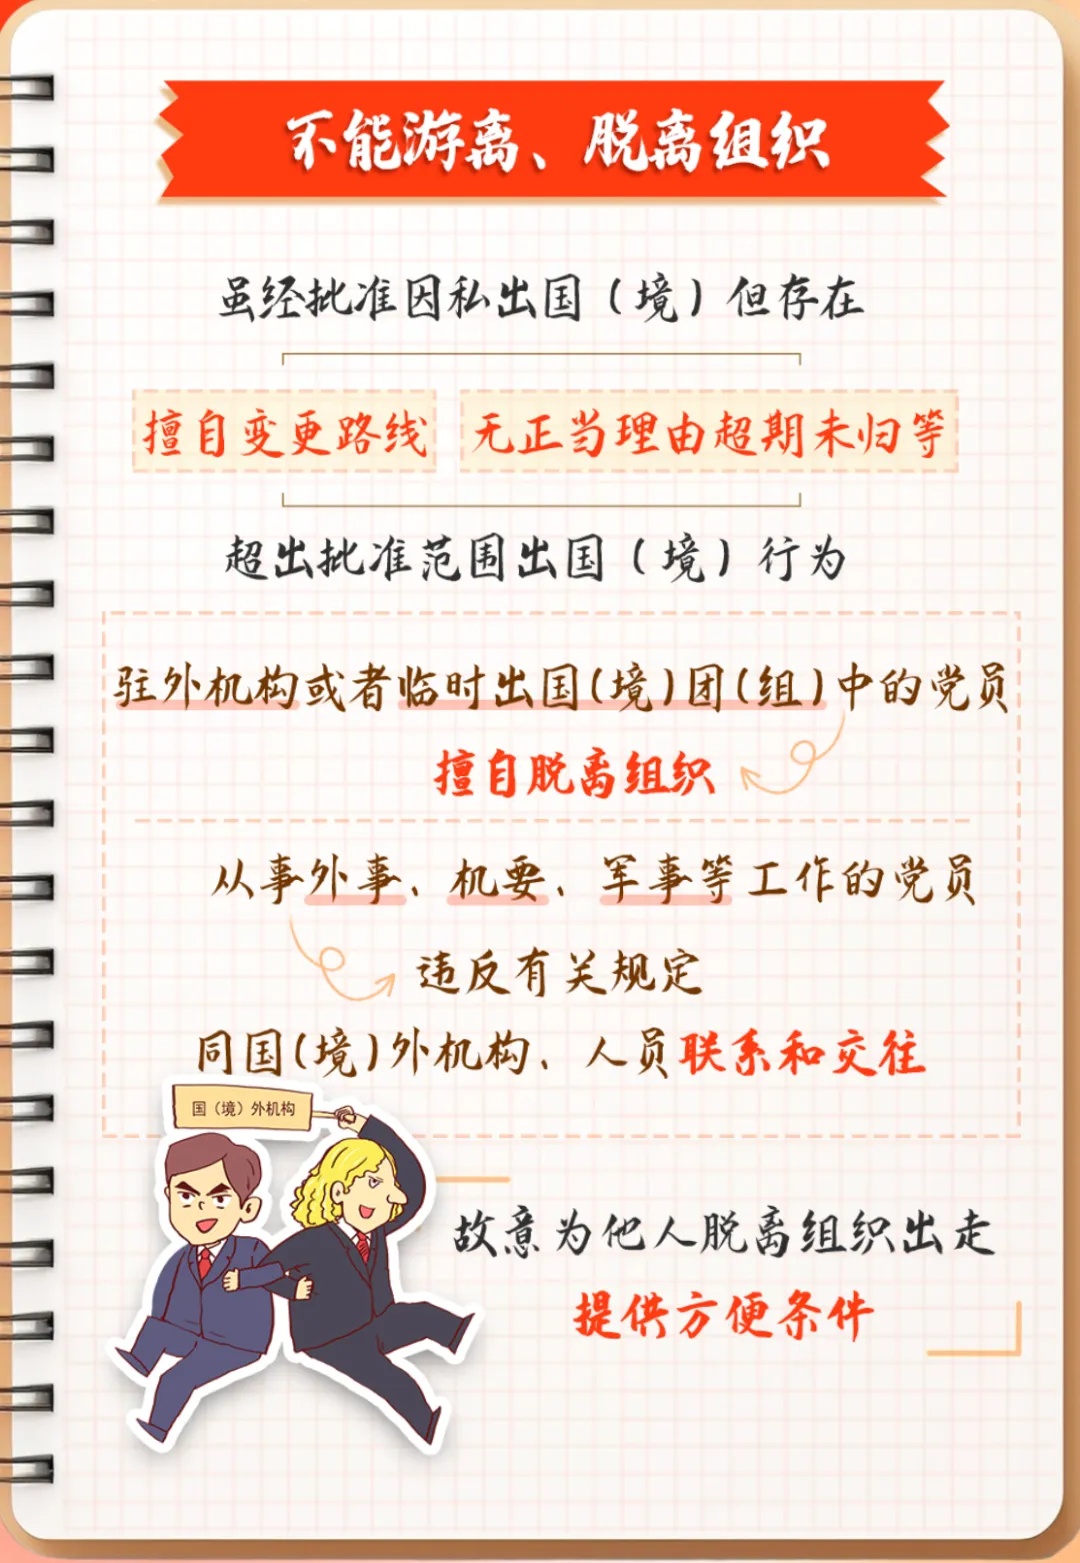 不能游离、脱离组织
虽经批准因私出国（境）但存在
擅自变更路线 无正当理由超期未归等
超出批准范围出国（境）行为
驻外机构或者临时出国(境)团(组)中的党员
擅自脱离组织
从事外事、机要、军事等工作的党员
违反有关规定
同国(境)外机构、人员联系和交往
国（境）外机构
故意为他人脱离组织出走
提供方便条件